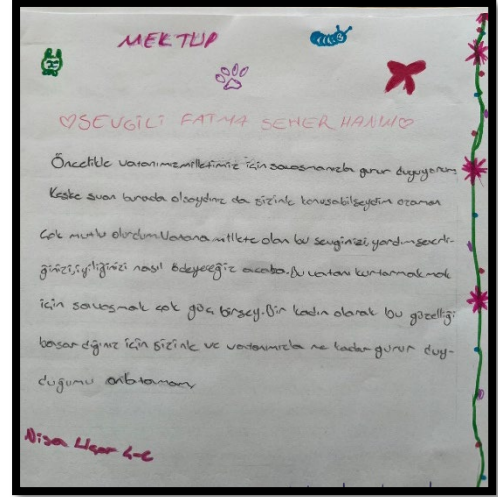 MEKTUP
♡SEVGİLİ FATMA SEHER HANIM♡
Öncelikle vatanımız milletimiz için savaşmanızla gurur duyuyorum
Keşke şuan burada olsaydınız da sizinle konuşabilseydim ozaman
çok mutlu olurdum. Vatana millete olan bu sevginizi, yardımseverli-
ğinizi, iyiliğinizi nasıl ödeyeceğiz acaba. Bu vatanı kurtarmakmak
için savaşmak çok güç birşey. Bir kadın olarak bu güzelliği
başardığınız için sizinle ve vatanımızla ne kadar gurur duy-
duğumu anlatamam
Nisa 4-C